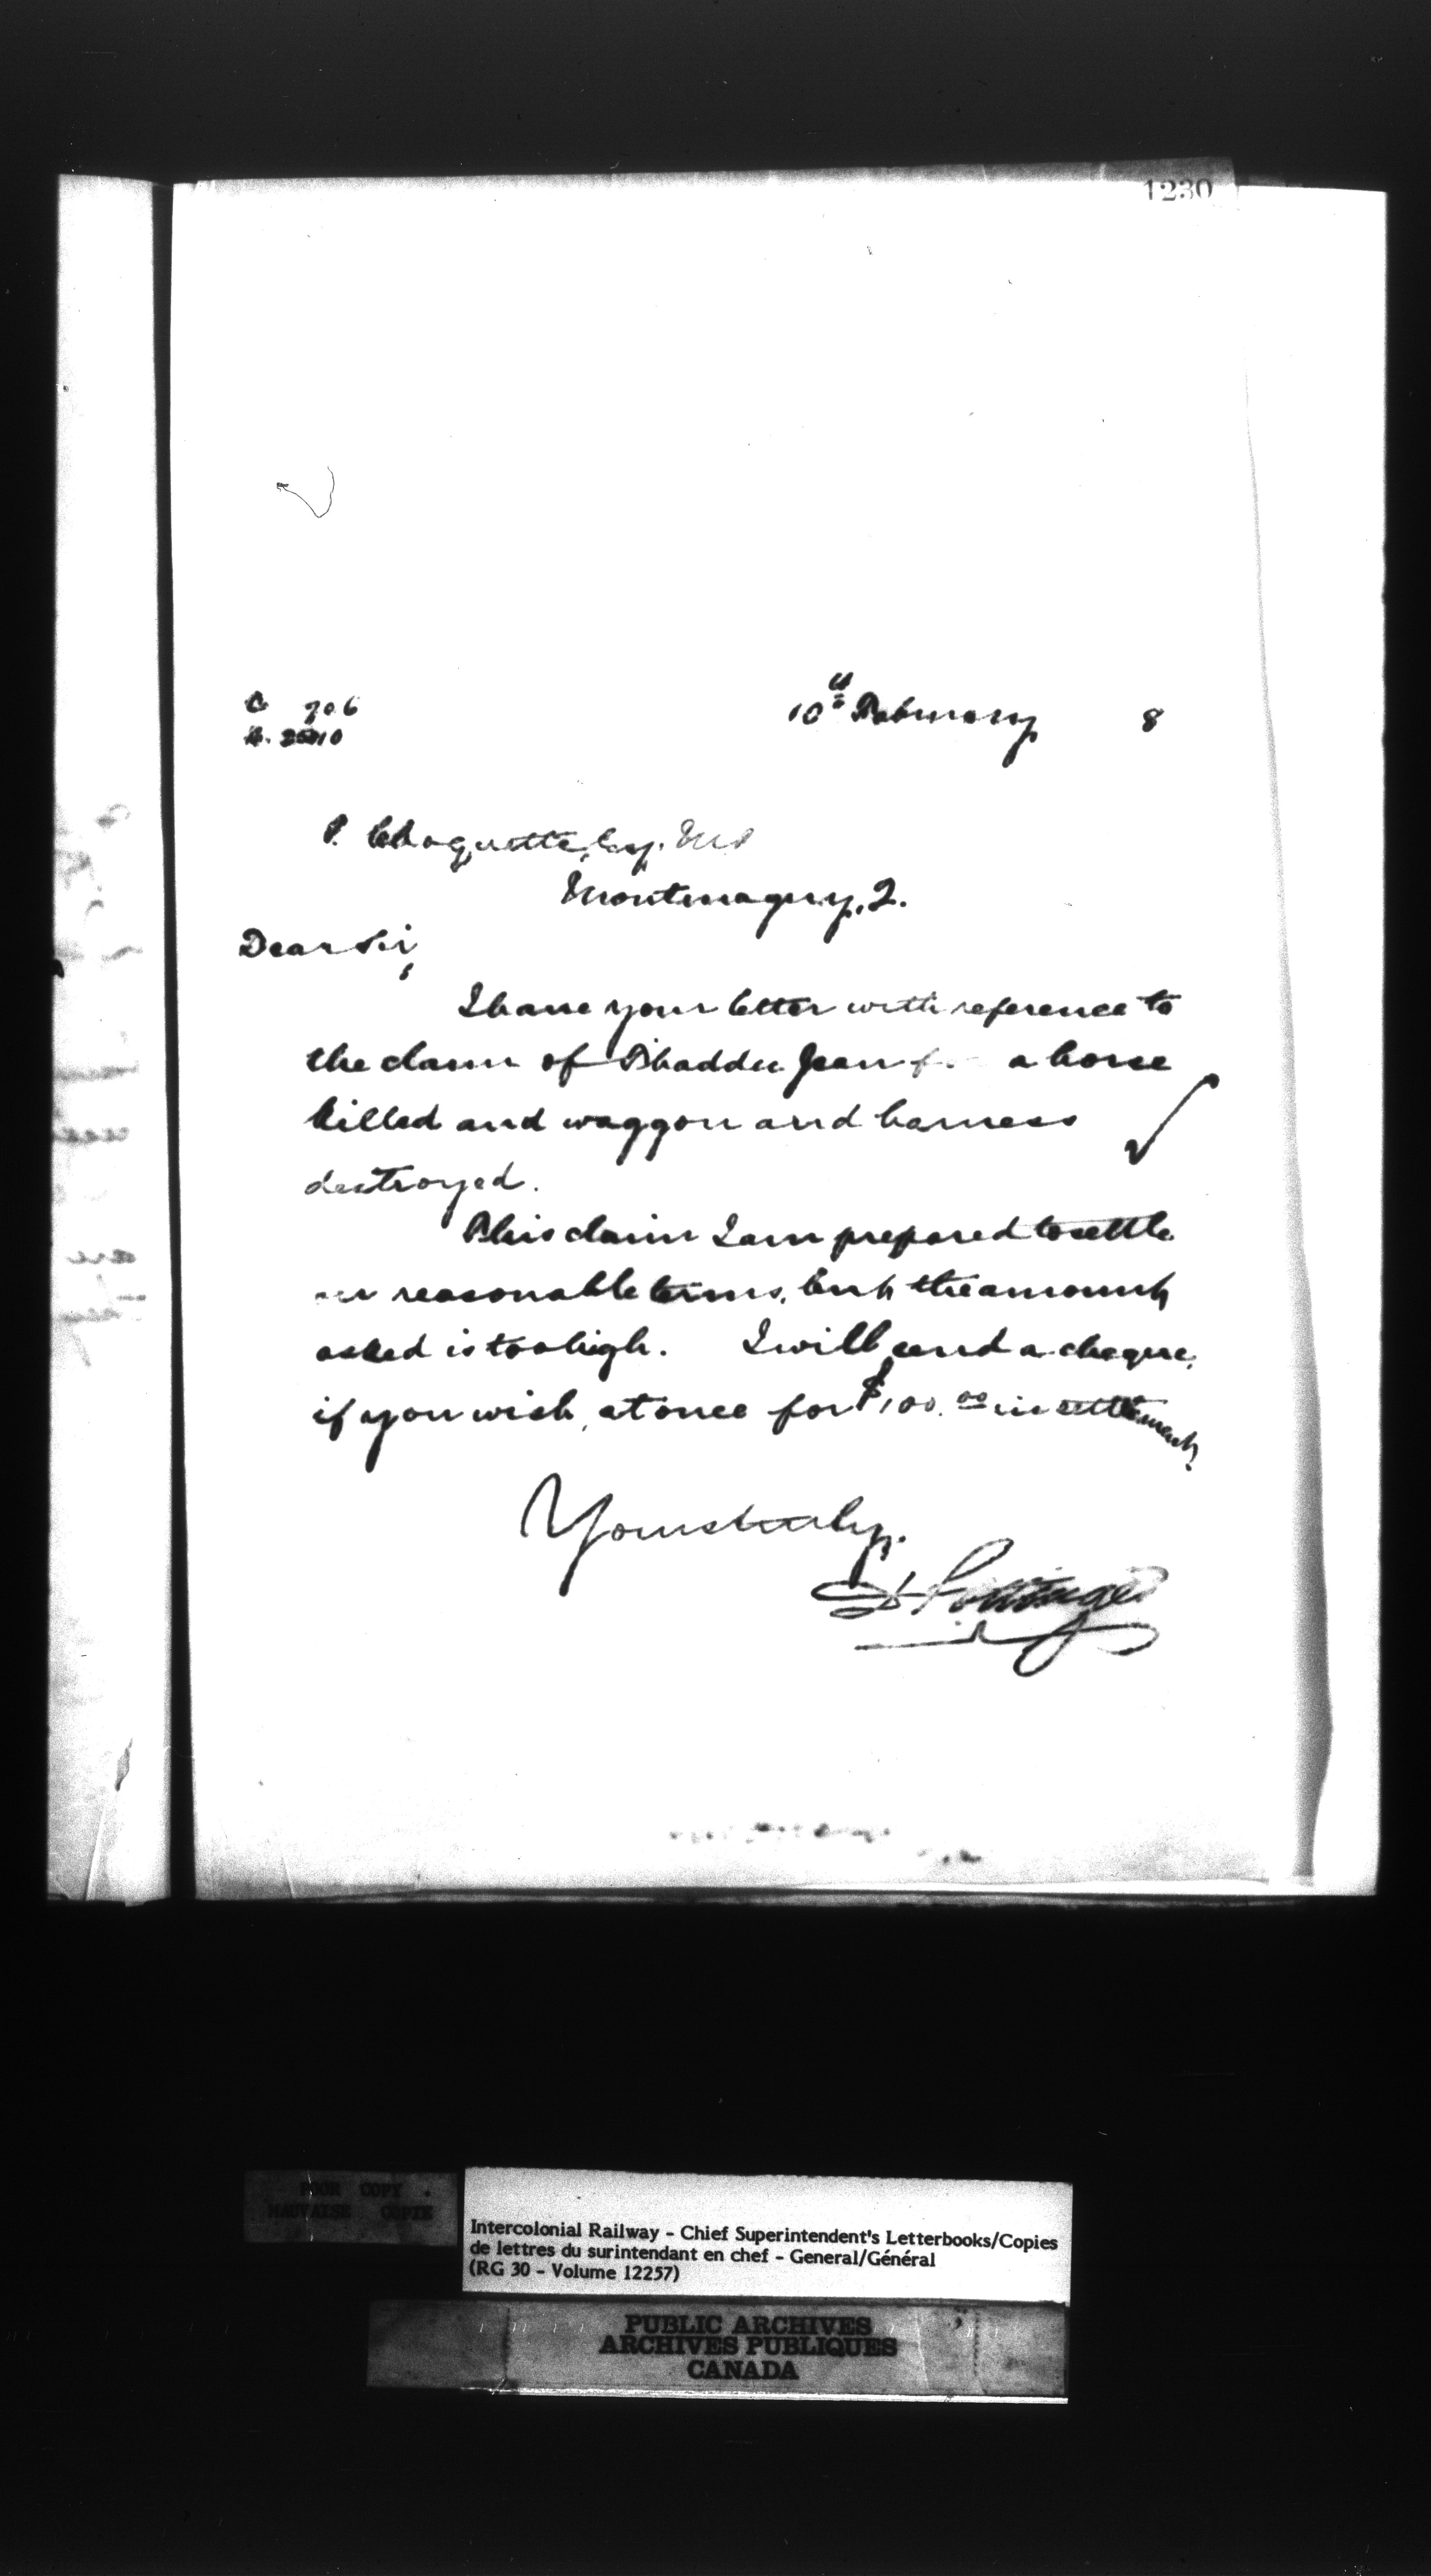 1230
10th February 8
C 706
P. Choquette, Esq. MP
Montmagny, Q.
Dear Sir,
I have your letter with reference to
the claim of Thaddee Jean for a horse
killed and waggon and harness
destroyed.
This claim I am prepared to settle
on reasonable terms, but the amount
asked is too high. I will send a cheque,
if you wish, at once for $100.00 in settlement.
Yours truly,
D Pottinger
POOR COPY
MAUVAISE COPIE
Intercolonial Railway - Chief Superintendent's Letterbooks/Copies
de lettres du surintendant en chef - General/Général
(RG 30 - Volume 12257)
PUBLIC ARCHIVES
ARCHIVES PUBLIQUES
CANADA